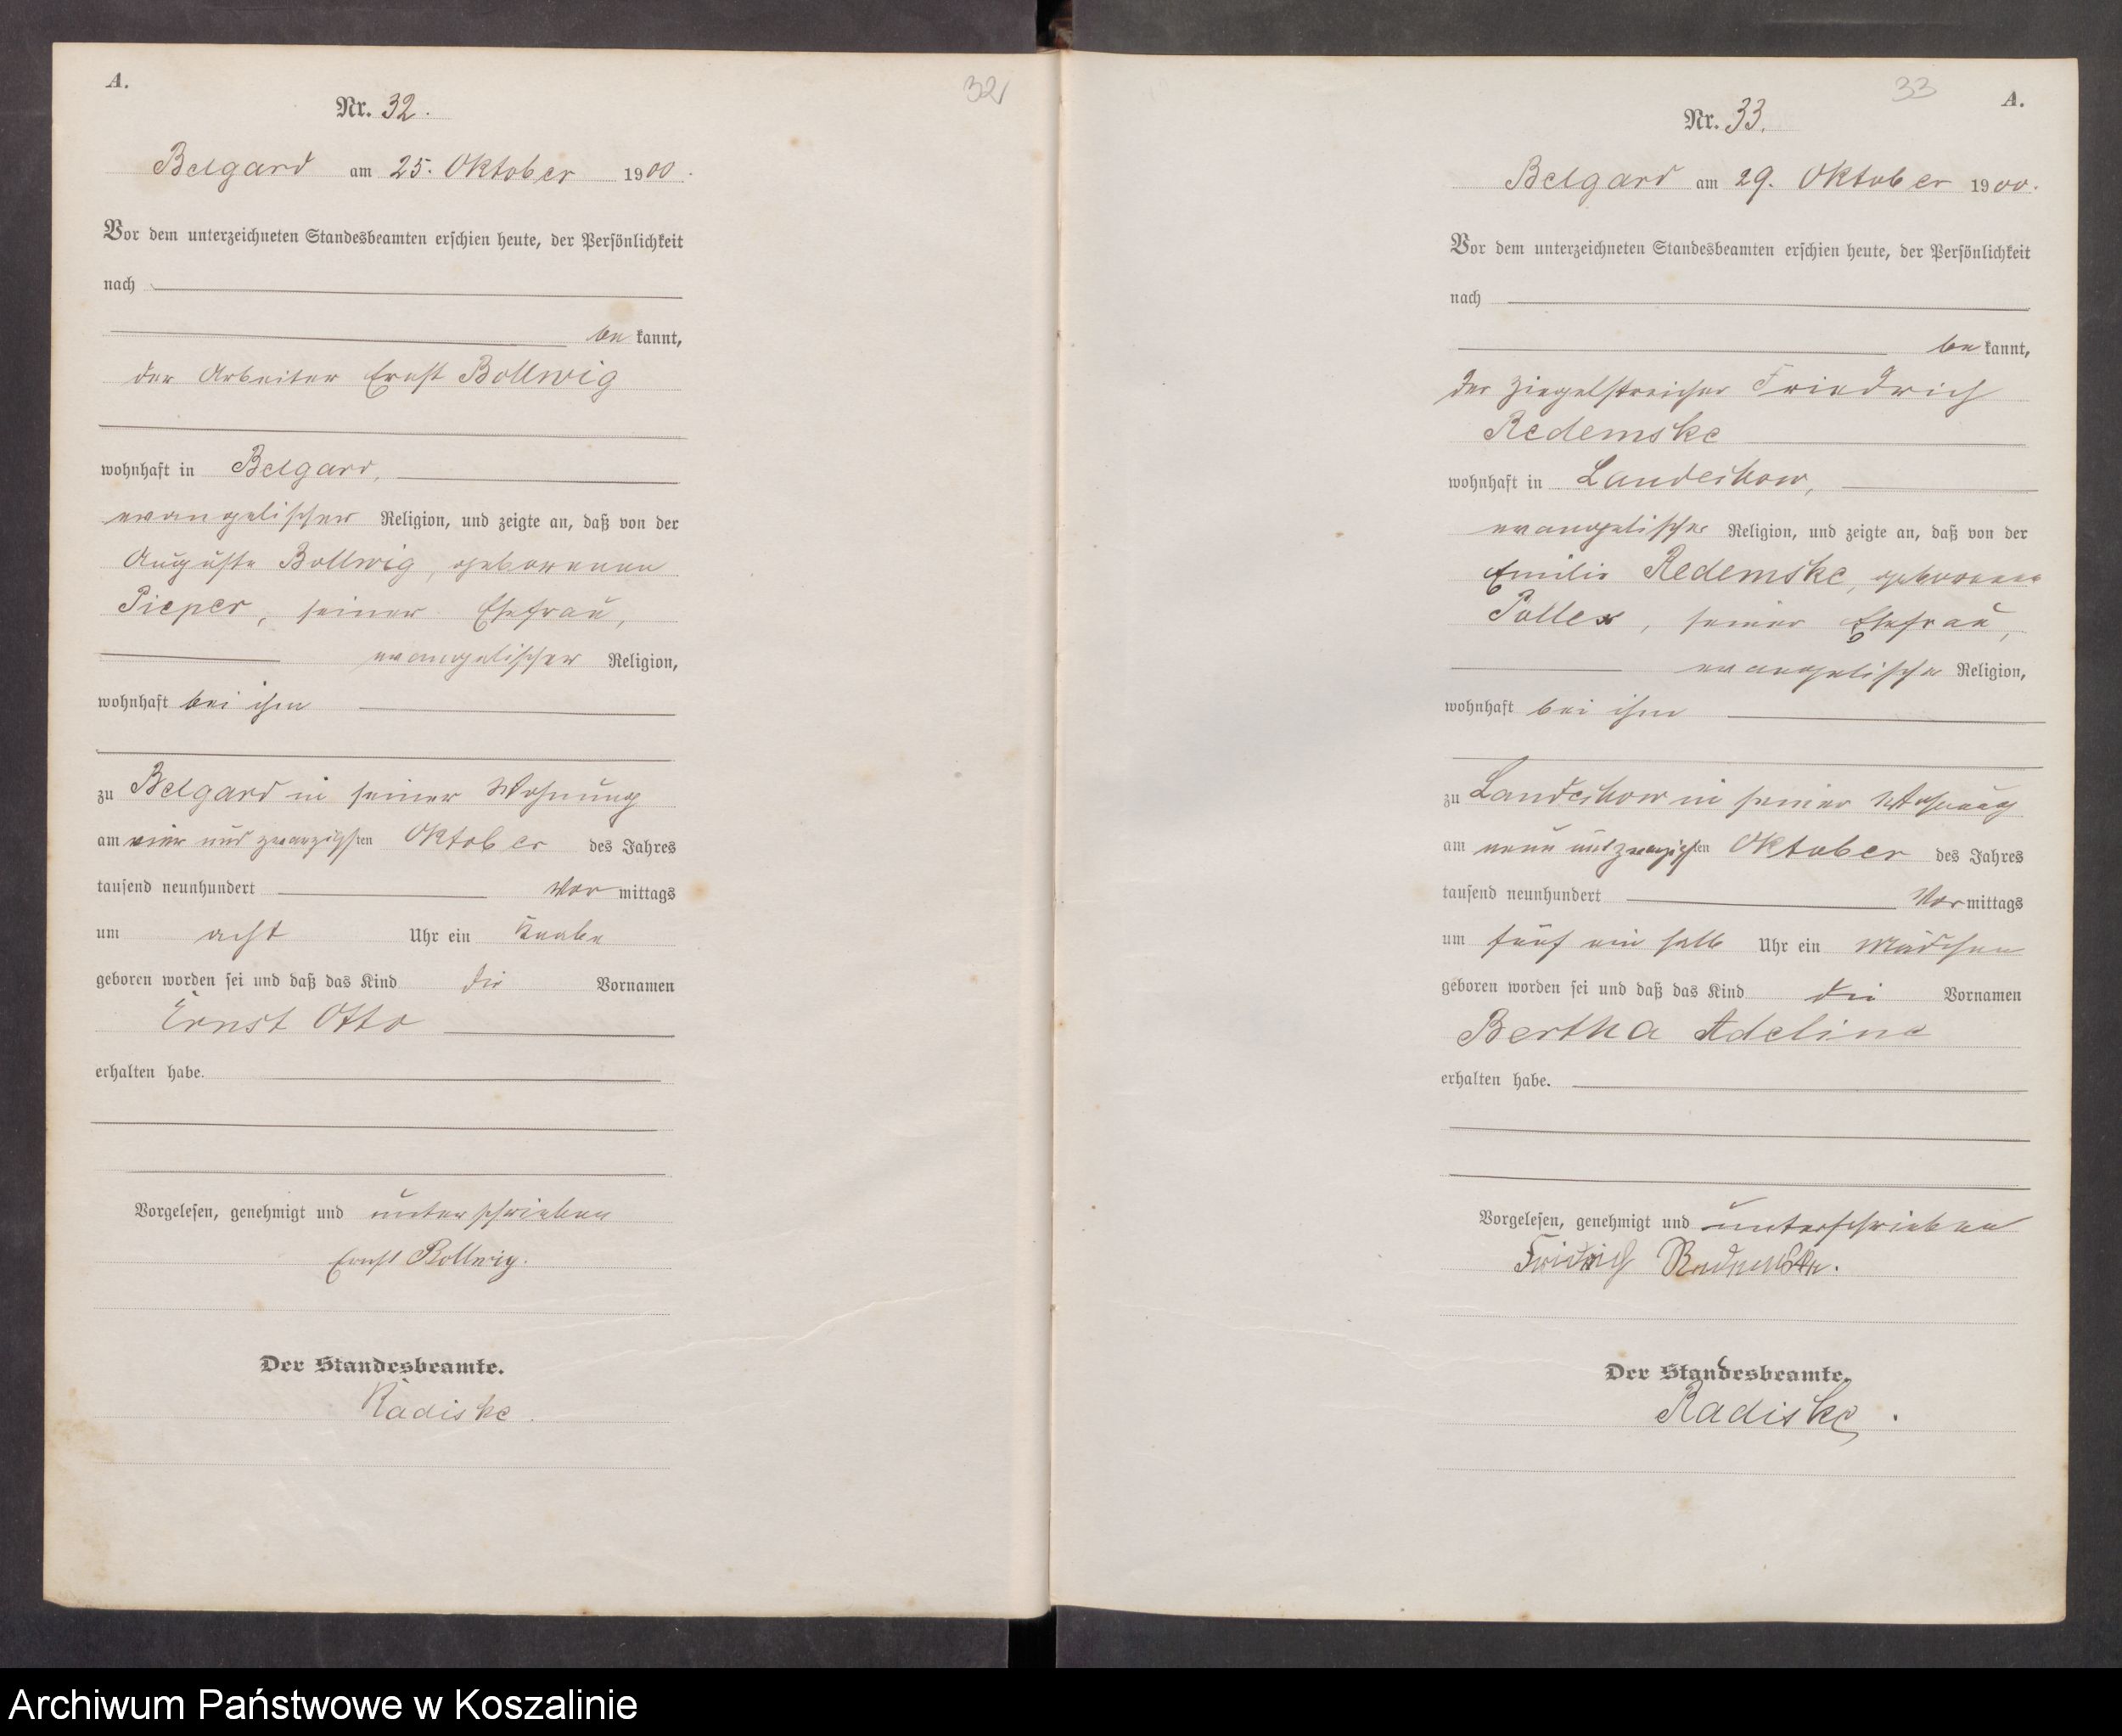 A.
32
Nr. 32.
Belgard am 25. Oktober 1900.
Vor dem unterzeichneten Standesbeamten erschien heute, der Persönlichkeit
nach
be kannt,
der Arbeiter Ernst Bollwig
wohnhaft in Belgard,
evangelischer Religion, und zeigte an, daß von der
Auguste Bollwig, geborenen
Pieper, seiner Ehefrau,
evangelischer Religion,
wohnhaft bei ihm
zu Belgard in seiner Wohnung
am vier und zwanzigsten Oktober des Jahres
tausend neunhundert Vor mittags
um acht Uhr ein Knabe
geboren worden sei und daß das Kind die Vornamen
Ernst Otto
erhalten habe.
Vorgelesen, genehmigt und unterschrieben
Ernst Bollwig.
Der Standesbeamte.
Radiske.
33
A.
Nr. 33.
Belgard am 29. Oktober 1900.
Vor dem unterzeichneten Standesbeamten erschien heute, der Persönlichkeit
nach
be kannt,
der Ziegelstreicher Friedrich
Redemske
wohnhaft in Landechow,
evangelischer Religion, und zeigte an, daß von der
Emilie Redemske, geborenen
seiner Ehefrau,
evangelischer Religion,
wohnhaft bei ihm
zu Landechow in seiner Wohnung
am neun und zwanzigsten Oktober des Jahres
tausend neunhundert Vor mittags
um fünf ein halb Uhr ein Mädchen
geboren worden sei und daß das Kind die Vornamen
Bertha Adeline
erhalten habe.
Vorgelesen, genehmigt und unterschrieben
Der Standesbeamte.
Radiske.
Archiwum Państwowe w Koszalinie